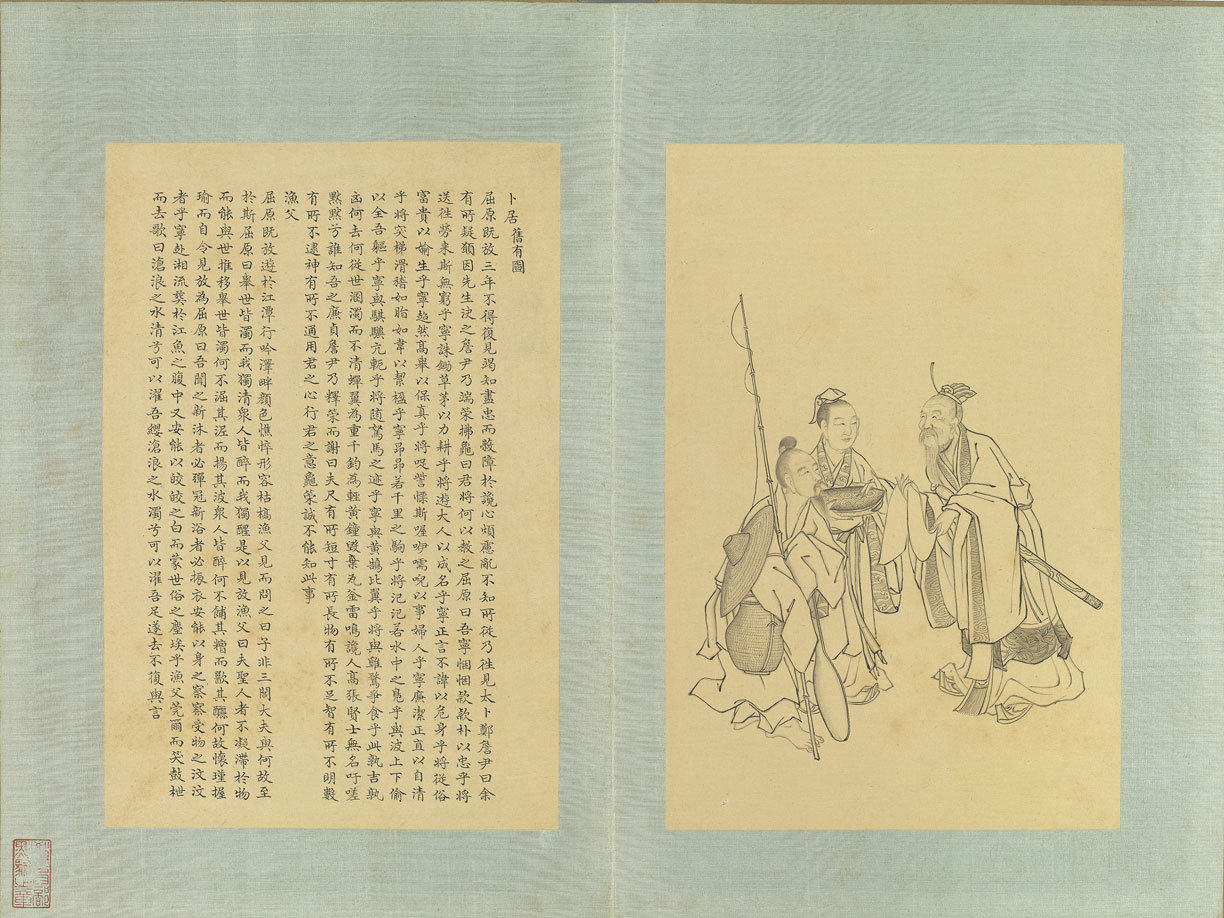 卜居 舊有圖
屈原既放三年不得復見竭知盡忠而蔽障於讒心煩慮亂不知所從乃往見太卜鄭詹尹曰余
有所疑願因先生決之詹尹乃端策拂龜曰君將何以教之屈原曰吾寧悃悃款款朴以忠乎將
送往勞來斯無窮乎寧誅鋤草茅以力耕乎將遊大人以成名乎寧正言不諱以危身乎將從俗
富貴以媮生乎寧超然高舉以保真乎將哫訾慄斯喔咿嚅唲以事婦人乎寧廉潔正直以自清
乎將突梯滑稽如脂如韋以絜楹乎寧昂昂若千里之駒乎將氾氾若水中之鳧乎與波上下偷
以全吾軀乎寧與騏驥亢軛乎將随駑馬之迹乎寧與黃鵠比翼乎將與雞鶩爭食乎此孰吉孰
凶何去何從世溷濁而不清蟬翼為重千鈞為輕黃鐘毀棄瓦釜雷鳴讒人高張賢士無名吁嗟
默默兮誰知吾之廉貞詹尹乃釋策而謝曰夫尺有所短寸有所長物有所不足智有所不明數
有所不逮神有所不通用君之心行君之意龜策誠不能知此事
漁父
屈原既放遊於江潭行吟澤畔顏色憔悴形容枯槁漁父見而問之曰子非三閭大夫與何故至
於斯屈原曰舉世皆濁而我獨清衆人皆醉而我獨醒是以見放漁父曰夫聖人者不凝滯於物
而能與世推移舉世皆濁何不淈其泥而揚其波衆人皆醉何不餔其糟而歠其醨何故懷瑾握
瑜而自令見放為屈原曰吾聞之新沐者必彈冠新浴者必振衣安能以身之察察受物之汶汶
者乎寧赴湘流葬於江魚之腹中又安能以皎皎之白而蒙世俗之塵埃乎漁父莞爾而笑鼓枻
而去歌曰滄浪之水清兮可以濯吾纓滄浪之水濁兮可以濯吾足遂去不復與言